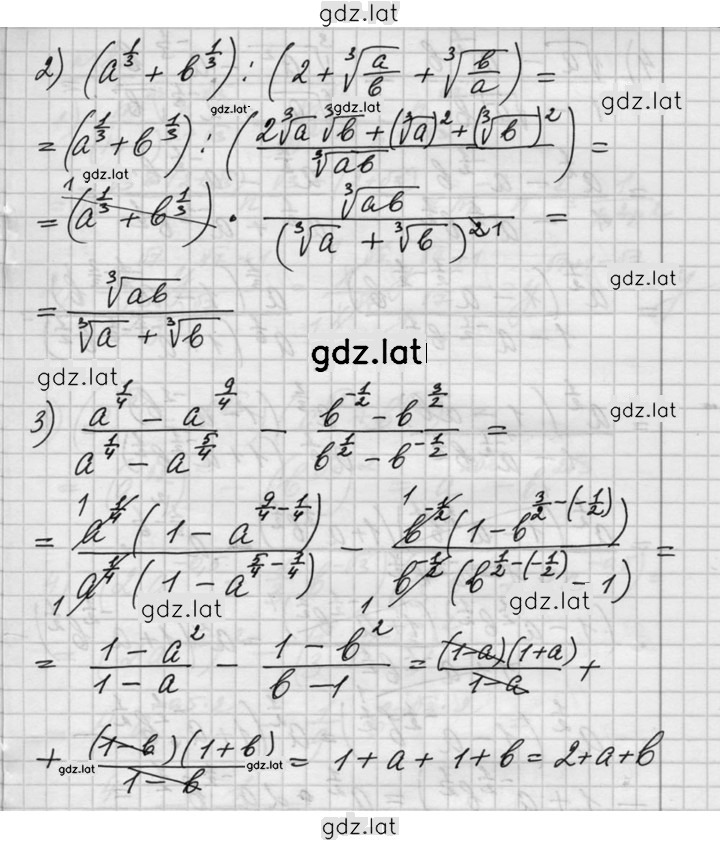 gdz.lat
2) (a^{1/3} + b^{1/3}) : (2 + ∛(a/b) + ∛(b/a)) =
gdz.lat gdz.lat gdz.lat
= (a^{1/3} + b^{1/3}) : ((2∛a ∛b + (∛a)² + (∛b)²) / ∛(ab)) =
gdz.lat
= (a^{1/3} + b^{1/3})¹ · ∛(ab) / (∛a + ∛b)^{2 1} =
gdz.lat
= ∛(ab) / (∛a + ∛b)
gdz.lat
gdz.lat
3) (a^{1/4} − a^{9/4}) / (a^{1/4} − a^{5/4}) − (b^{-1/2} − b^{3/2}) / (b^{1/2} − b^{-1/2}) =
gdz.lat
= 1 a^{1/4} (1 − a^{9/4 − 1/4}) / 1 a^{1/4} (1 − a^{5/4 − 1/4}) − 1 b^{-1/2} (1 − b^{3/2 − (−1/2)}) / 1 b^{-1/2} (b^{1/2 − (−1/2)} − 1) =
gdz.lat gdz.lat
= (1 − a²) / (1 − a) − (1 − b²) / (b − 1) = (1−a)(1+a) / (1−a) +
+ (1−b)(1+b) / (1−b) = 1 + a + 1 + b = 2+a+b
gdz.lat gdz.lat
gdz.lat